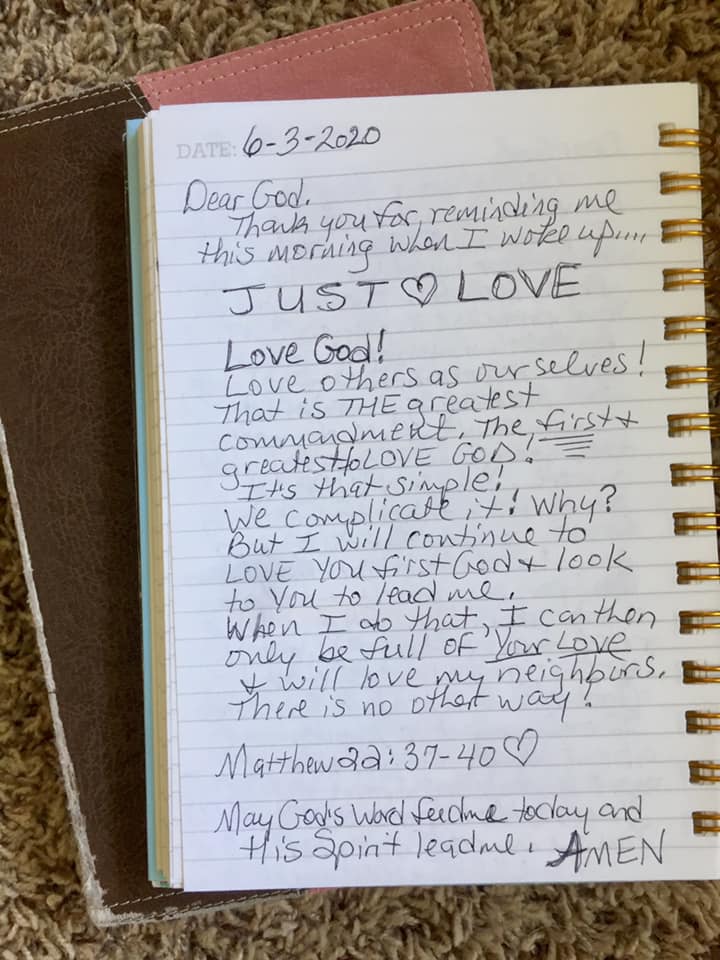 DATE: 6-3-2020
Dear God.
Thank you for reminding me
this morning when I woke up....
JUST ♡ LOVE
Love God!
Love others as ourselves!
That is THE greatest
commandment. The first +
greatest to LOVE GOD!
It's that simple!
We complicate it! Why?
But I will continue to
LOVE YOU first God + look
to You to lead me.
When I do that, I can then
only be full of Your Love
+ will love my neighbors.
There is no other way!
Matthew 22:37-40 ♡
May God's Word feed me today and
His Spirit lead me. AMEN